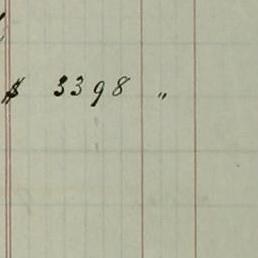 $ 3398 "